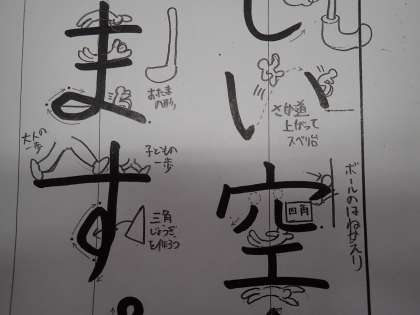 し
い
空
さか道
上がって
スベリ台
四角
ボールのはねかえり
ま
す
おたま
の形
大人の
一歩
子どもの
一歩
三角
じょうぎ
を作ろう